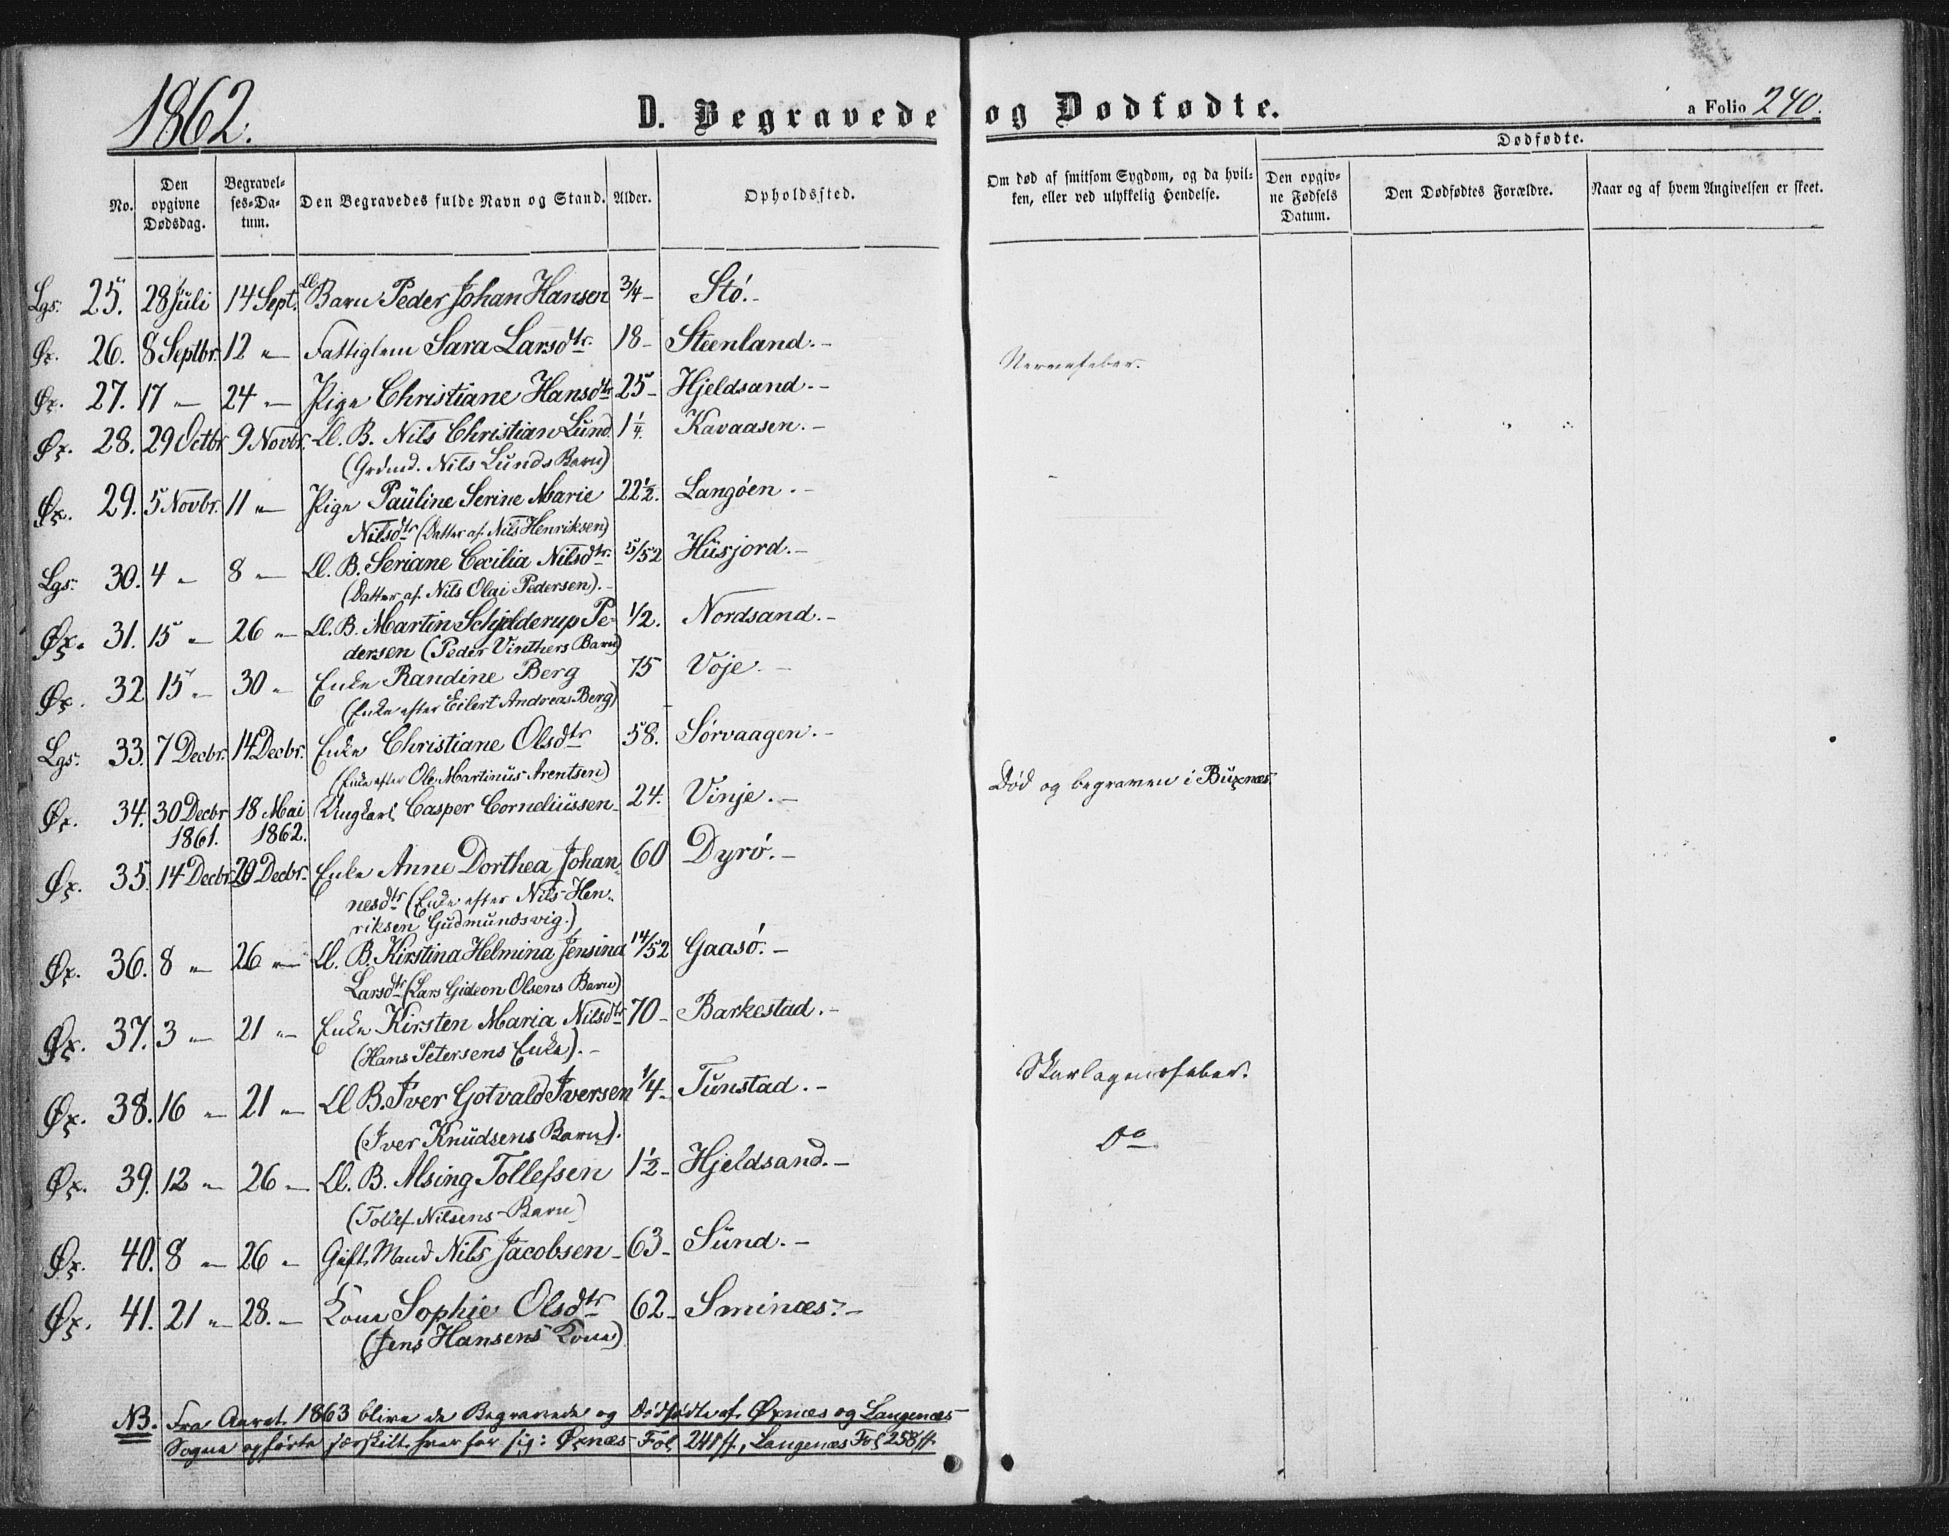 1862.
D. Begravede og Dødfødte.
a Folio 240.
No.
Den opgivne Dødsdag.
Begravelses-Datum.
Den Begravedes fulde Navn og Stand.
Alder.
Opholdssted.
Om død af smitsom Sygdom, og da hvilken, eller ved ulykkelig Hendelse.
Dødfødte.
Den opgivne Fødsels Datum.
Den Dødfødtes Forældre.
Naar og af hvem Angivelsen er skeet.
Lgs. 25. 28 Juli 14 Sept. Ll. Barn Peder Johan Hansen 3/4 - Stö. -
Øx. 26. 8 Septbr. 12 " - Fattiglem Sara Larsdtr. 18 - Steenland. - Nervefeber.
Øx. 27. 17 - 24 - Pige Christiane Hansdtr 25 - Hjeldsand. -
Øx. 28. 29 Octbr 9 Novbr. Ll. B. Nils Christian Lund 1 1/4. Kavaasen. -
(Grdmd. Nils Lunds Barn)
Øx. 29. 5 Novbr. 11 " - Pige Pauline Serine Marie 22 1/2. Langöen. -
Nilsdtr (Datter af Nils Henriksen)
Lgs. 30. 4 " 8 - Ll. B. Seriane Cecilia Nilsdtr. 5/52 Husjord. -
(Datter af Nils Olai Pedersen). -
Øx. 31. 15 " 26 " Ll. B. Martin Schjelderup Pe- 1/2. Nordsand. -
dersen (Peder Vinthers Barn)
Øx. 32 15 " 30 " Enke Randine Berg 75 Voje. -
(Enke efter Eilert Andreas Berg)
Lgs. 33. 7 Decbr. 14 Decbr. Enke Christiane Olsdtr 58. Sørvaagen. -
(Enke efter Ole Martinus Arentsen)
Øx. 34. 30 Decbr 18 Mai Ungkarl Casper Corneliussen 24. Vinje. - Död og begraven i Buxnæs.
1861. 1862.
Øx. 35. 14 Decbr. 29 Decbr. Enke Anne Dorthea Johan- 60 Dyrö. -
nesdtr (Enke efter Nils Hen-
riksen Gudmundsvig.)
Øx. 36. 8 " 26 " Ll. B. Kirstina Helmina Jensina 14/52 Gaasö. -
Larsdtr (Lars Gideon Olsens Barn)
Øx. 37. 3 " 21 " Enke Kirsten Maria Nilsdtr 70 - Barkestad. -
(Hans Petersens Enke). -
Øx. 38. 16 " 21 " Ll B. Iver Gotvald Iversen 1/4 - Tunstad. - Skarlagensfeber.
(Iver Knudsens Barn).
Øx. 39. 12 " 26 " Ll. B. Alsing Tollefsen 1 1/2 - Hjeldsand. - Do
(Tollef Nilsens Barn)
Øx. 40. 8 " 26 " Gift Mand Nils Jacobsen 63 - Sund. -
Øx. 41. 21 " 28. - Kone Sophie Olsdtr 62 - Sminæs. -
(Jens Hansens Kone)
NB. Fra Aaret 1863 blive de Begravede og Dödfödte af Øxnæs og Langenæs
Sogne opförte særskilt hver for sig: Øxnæs Fol 241 ff, Langenæs Fol 258 ff.